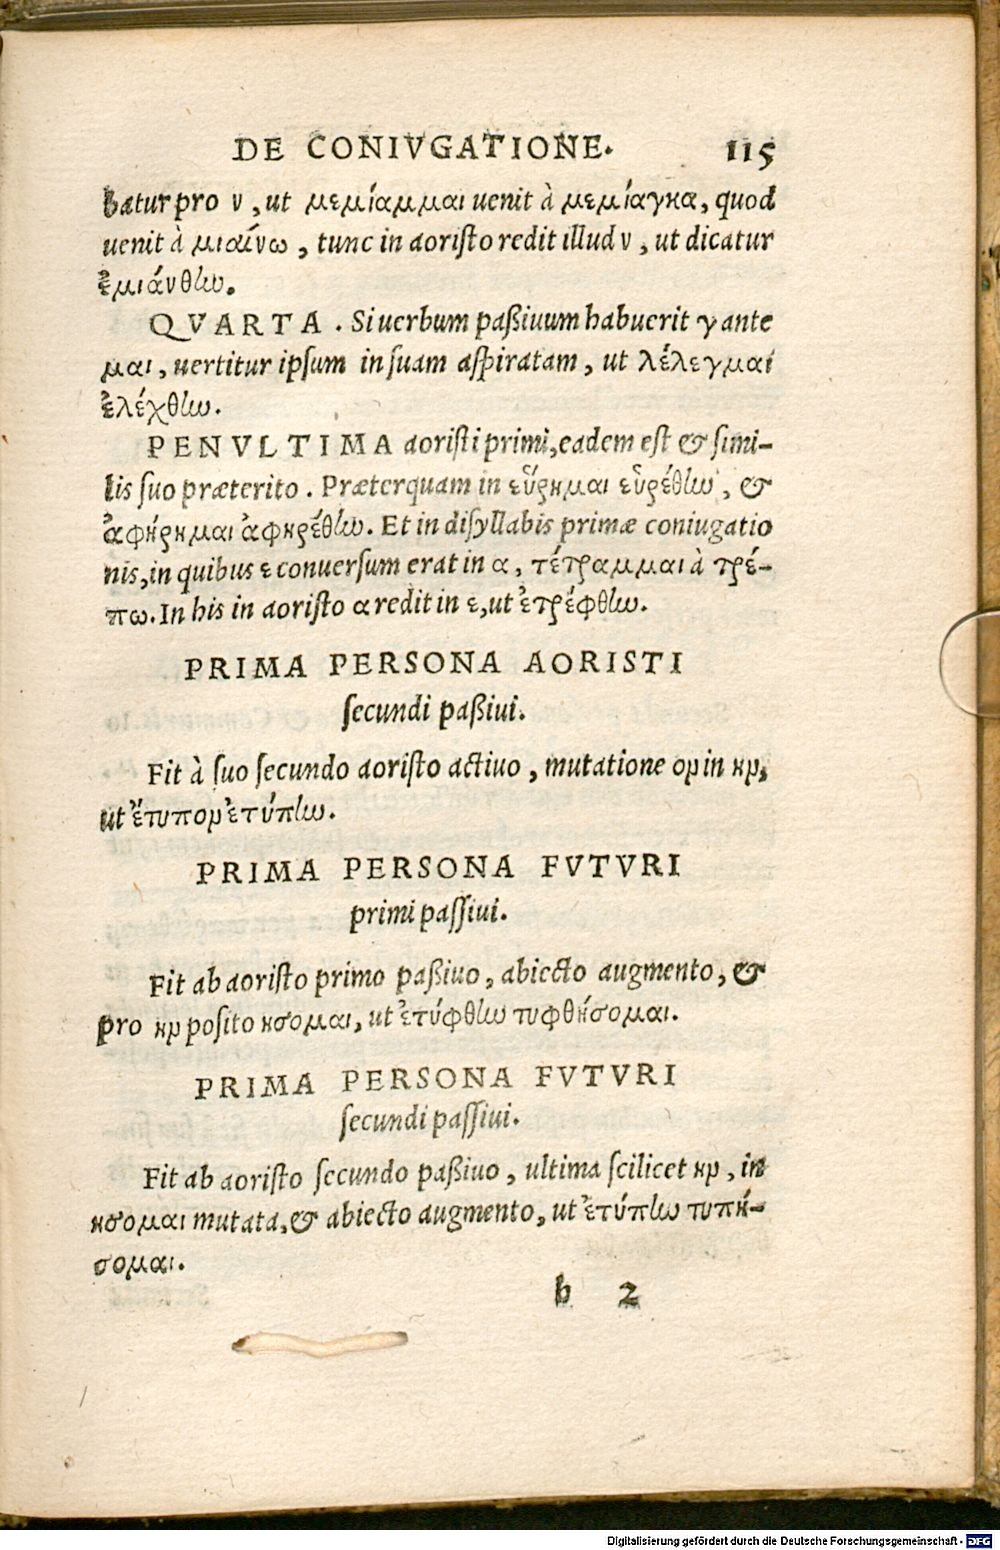 DE CONIVGATIONE. 115
batur pro ν, ut μεμίαμμαι uenit à μεμίαγκα, quod
uenit à μιαίνω, tunc in aoristo redit illud ν, ut dicatur
ἐμιάνθην.
QVARTA. Si uerbum paßiuum habuerit γ ante
μαι, uertitur ipsum in suam aspiratam, ut λέλεγμαι
ἐλέχθην.
PENVLTIMA aoristi primi, eadem est & simi-
lis suo præterito. Præterquam in εὕρημαι εὑρέθην, &
ἀφῄρημαι ἀφηρέθην. Et in disyllabis primæ coniugatio
nis, in quibus ε conuersum erat in α, τέτραμμαι à τρέ-
πω. In his in aoristo α redit in ε, ut ἐτρέφθην.
PRIMA PERSONA AORISTI
secundi paßiui.
Fit à suo secundo aoristo actiuo, mutatione ον in ην,
ut ἔτυπον ἐτύπην.
PRIMA PERSONA FVTVRI
primi passiui.
Fit ab aoristo primo paßiuo, abiecto augmento, &
pro ην posito ησομαι, ut ἐτύφθην τυφθήσομαι.
PRIMA PERSONA FVTVRI
secundi passiui.
Fit ab aoristo secundo paßiuo, ultima scilicet ην, in
ησομαι mutata, & abiecto augmento, ut ἐτύπην τυπή-
σομαι.
h 2
Digitalisierung gefördert durch die Deutsche Forschungsgemeinschaft - DFG